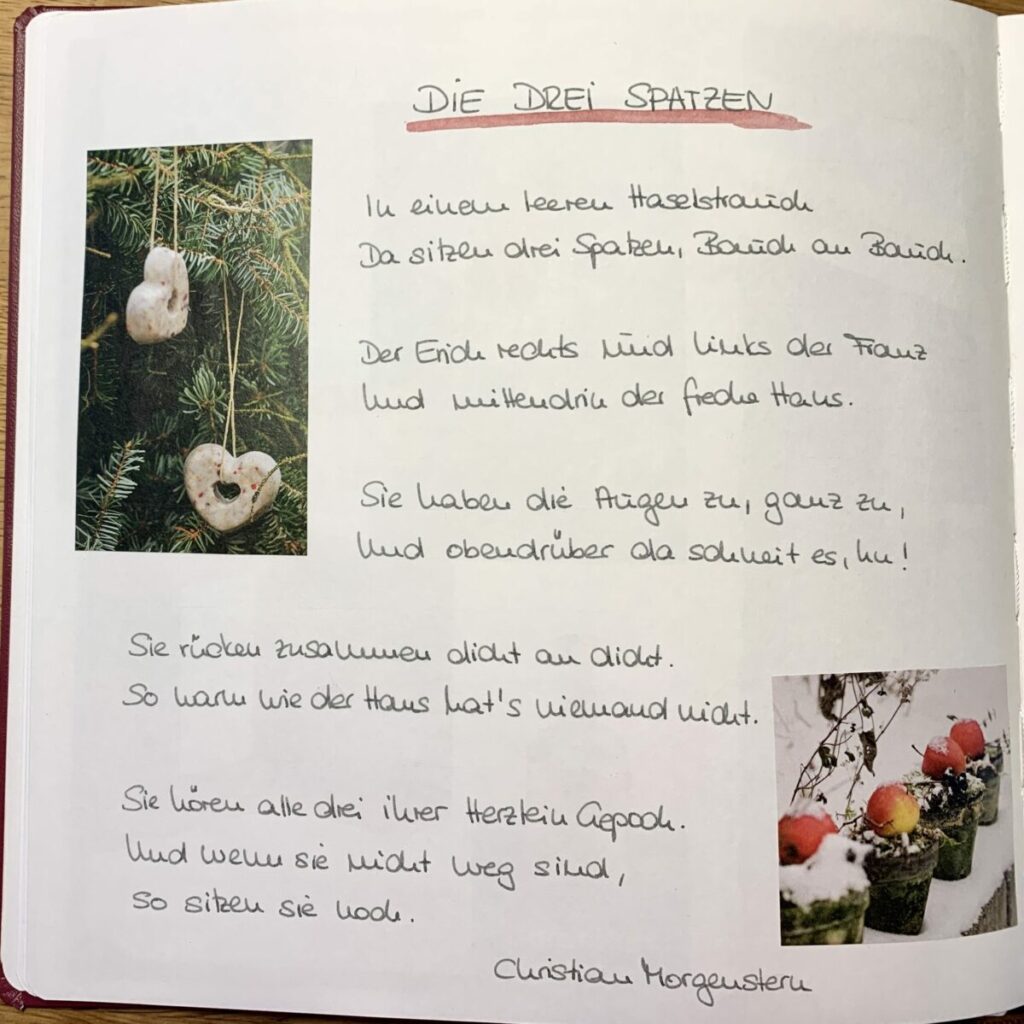 DIE DREI SPATZEN
In einem leeren Haselstrauch
Da sitzen drei Spatzen, Bauch an Bauch.
Der Erich rechts und links der Franz
Und mittendrin der freche Hans.
Sie haben die Augen zu, ganz zu,
Und obendrüber da schneit es, hu!
Sie rücken zusammen dicht an dicht.
So warm wie der Hans hat's niemand nicht.
Sie hören alle drei ihrer Herzlein Gepoch.
Und wenn sie nicht weg sind,
so sitzen sie noch.
Christian Morgenstern